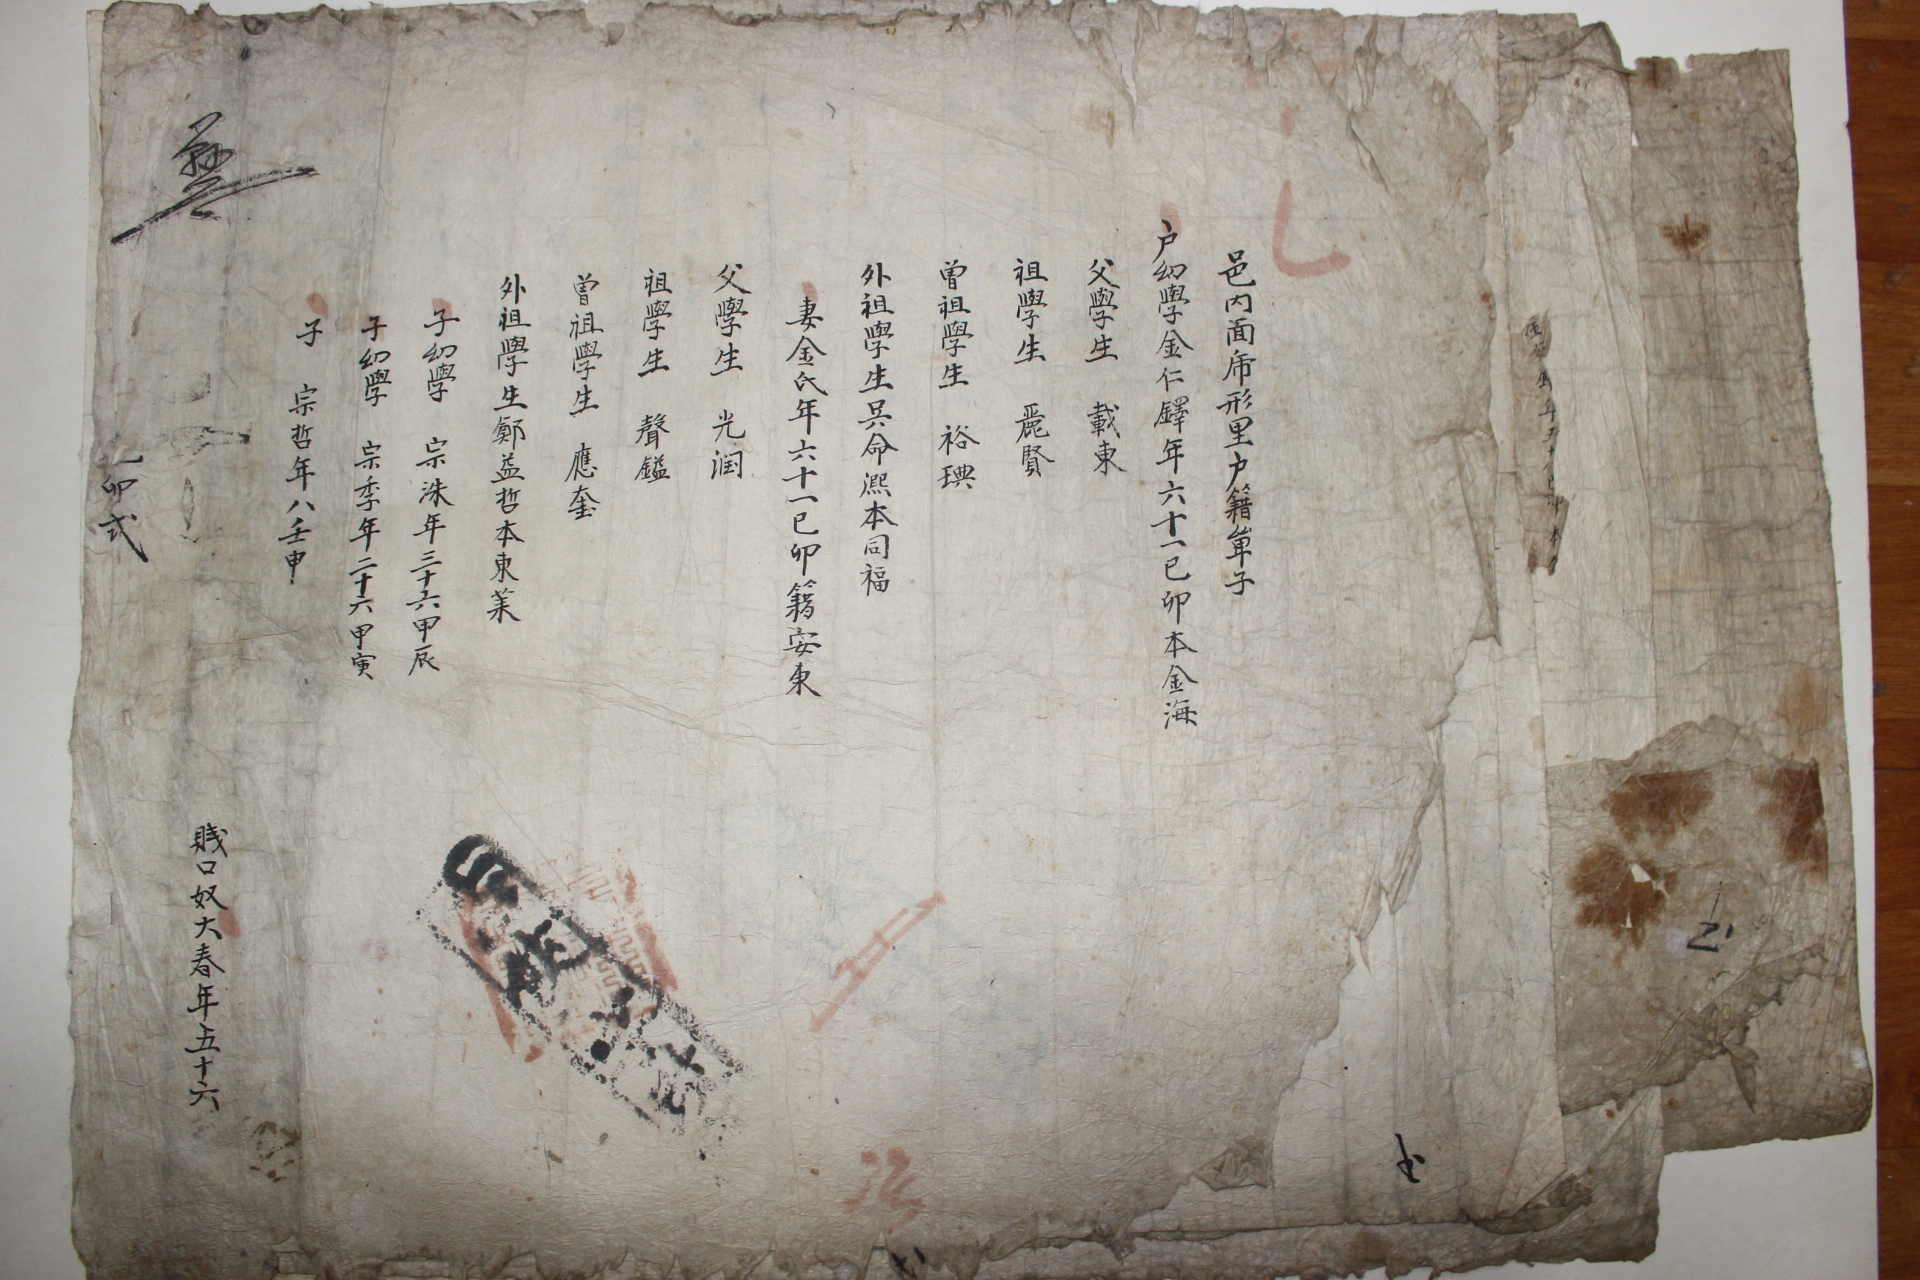 邑内面帝形里户籍單子
户幼學金仁鐸年六十一己卯本金海
父學生 載東
祖學生 麗賢
曾祖學生 裕琠
外祖學生吳命熈本同福
妻金氏年六十一己卯籍安東
父學生 光润
祖學生 聲鎰
曾祖學生 應奎
外祖學生鄭益哲本東萊
子幼學 宗洙年三十六甲辰
子幼學 宗季年二十六甲寅
子 宗哲年八壬申
賤口奴大春年五十六
卯式